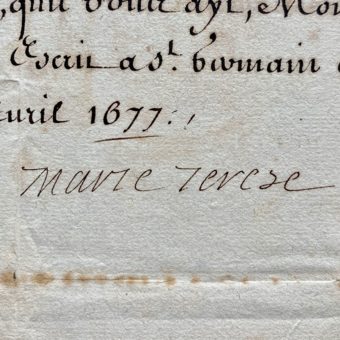 , qu'il vous ayt, Mon
Escrit a s.t Germain
Avril 1677.
Marie Terese